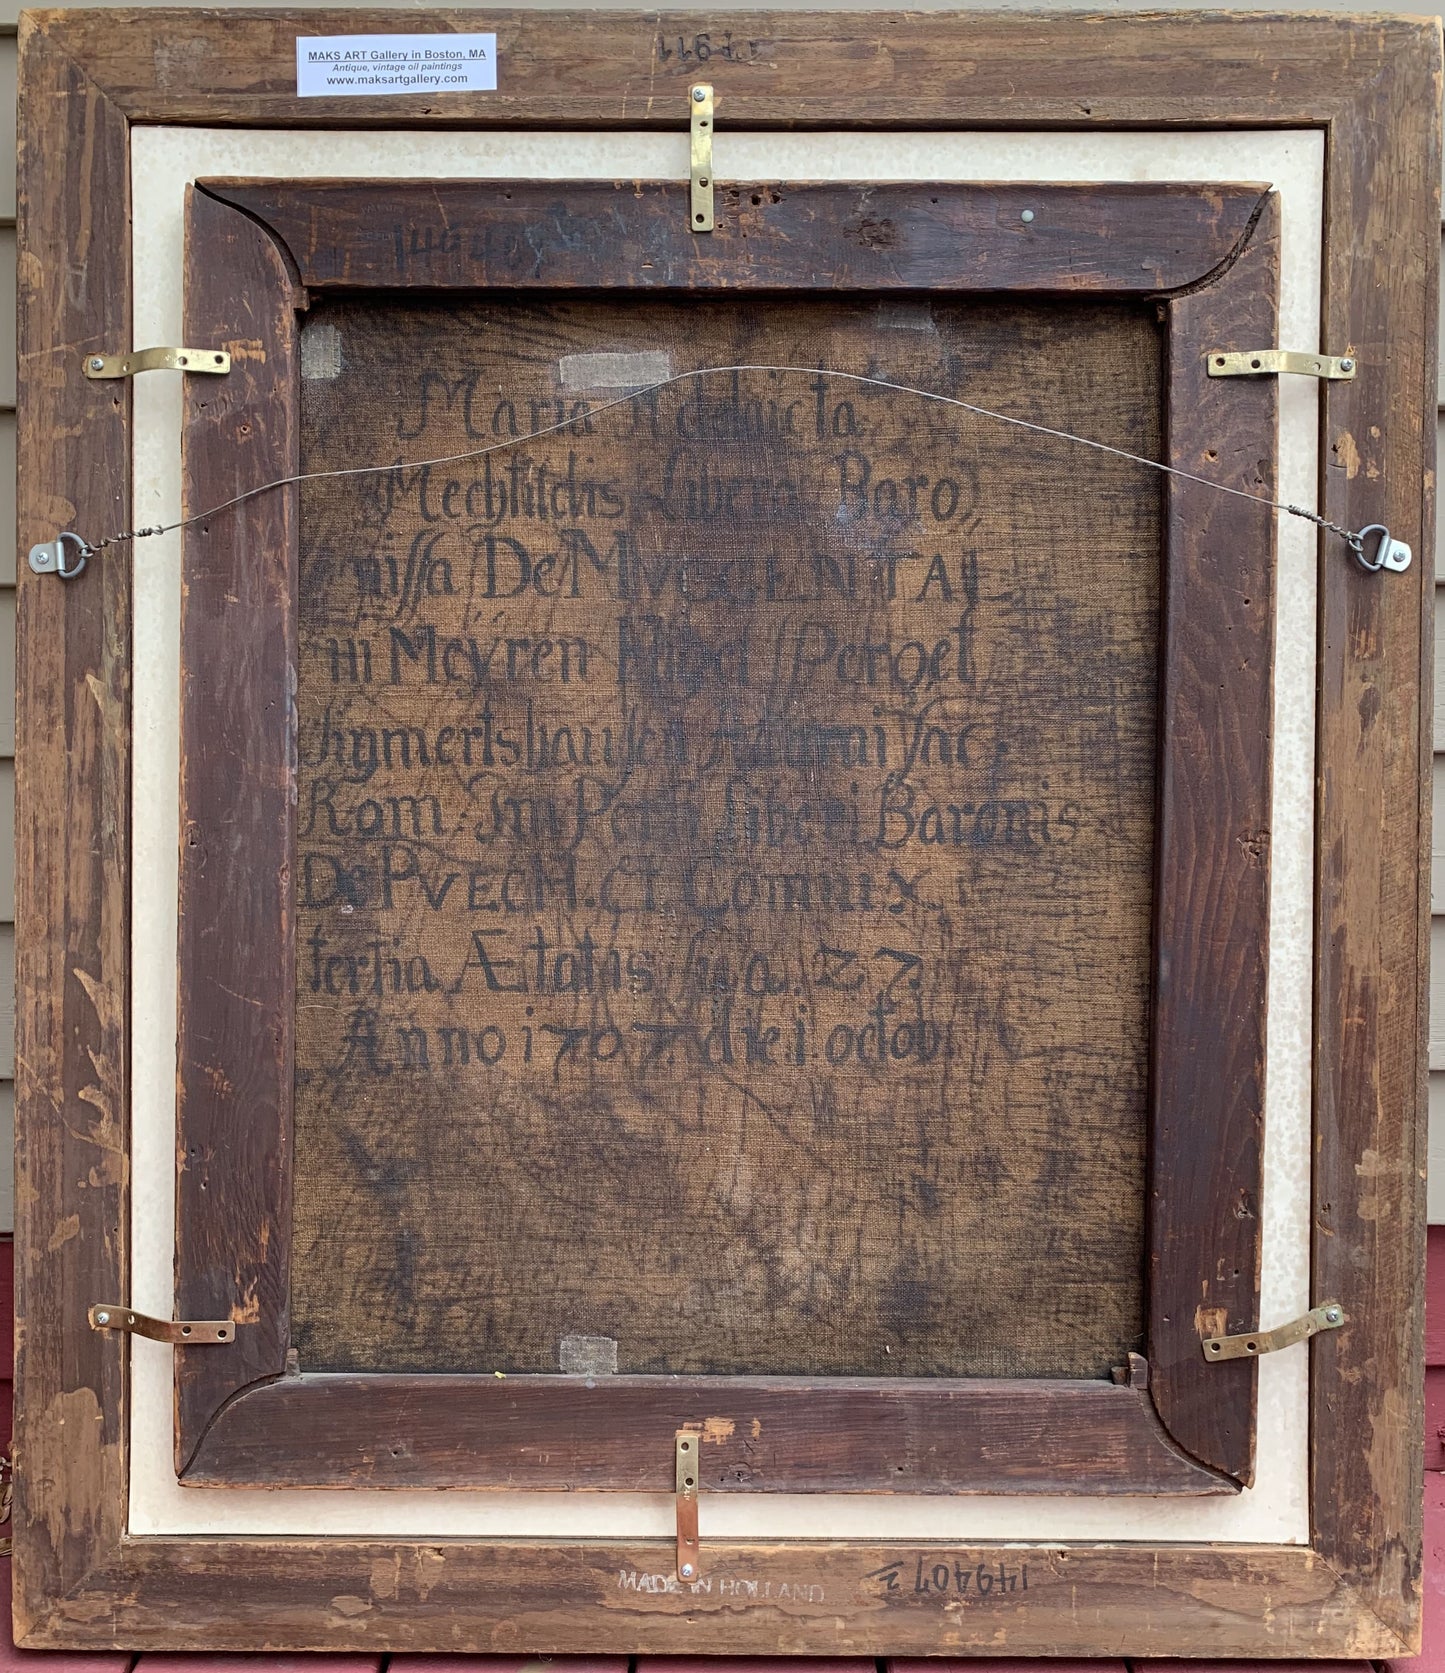 MAKS ART Gallery in Boston, MA
Antique, vintage oil paintings
www.maksartgallery.com
Maria
Mechtildis Libera Baro,
nissa De MVGGENTAL
in Meÿren Perget
Sigmertshausen
Rom. Im Perii Liberi Baronis
De PVECH. et. Coniux
tertia Ætatis sua. 27.
Anno 1707. die 1. octob
MADE IN HOLLAND
149407